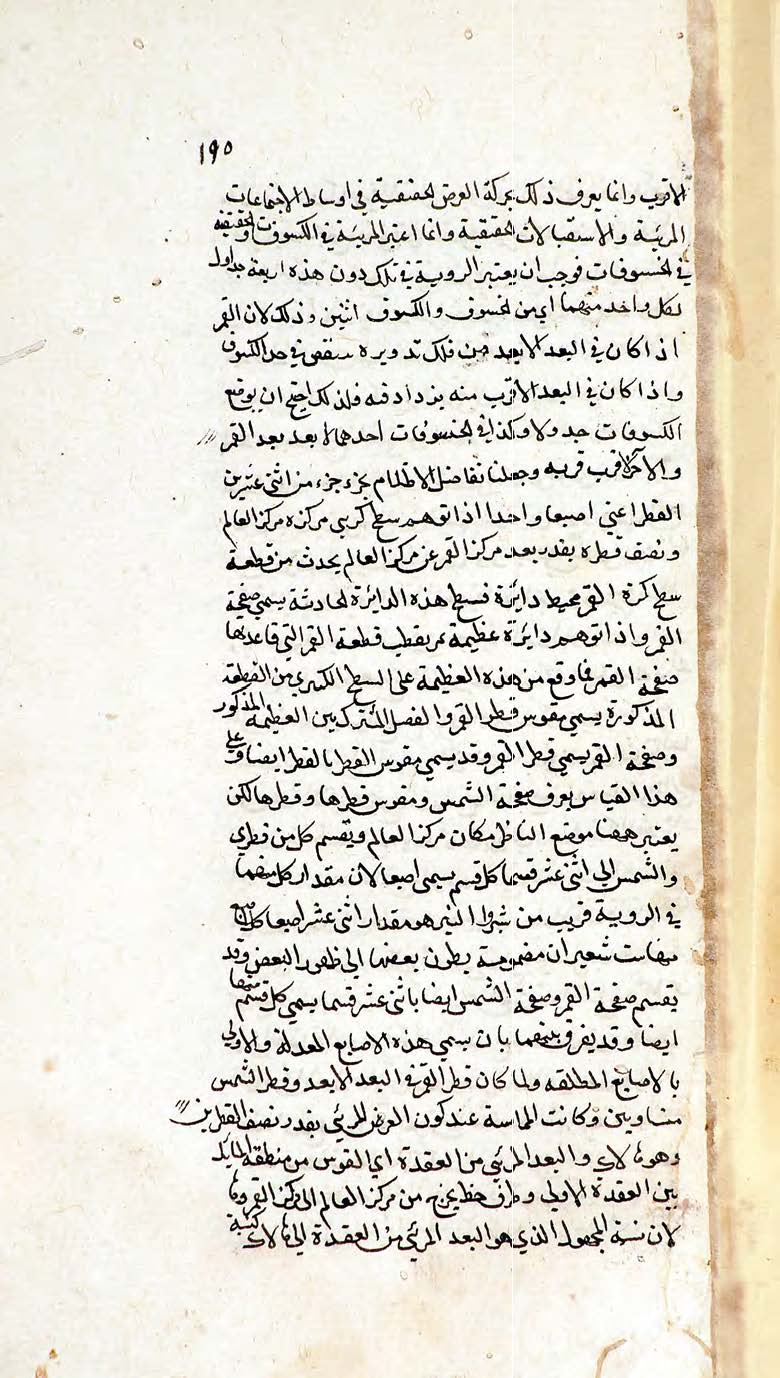 ١٩٥
الاقرب وانما يعرف ذلك بحركة العرض الحقيقية في اوساط الاجتماعات
المرئية والاستقبالات الحقيقية وانما اعتبر المرئية في الكسوفات والحقيقة
في الخسوفات فوجب ان يعتبر الروية في تلك دون هذه اربعة جداول
لكل واحد منهما اي من الخسوف والكسوف اثنين وذلك لان القمر
اذا كان في البعد الابعد من فلك تدويره ينقص في حد الكسوف
واذا كان في البعد الاقرب منه يزداد فيه فلذلك احتيج ان يوضع
الكسوفات جدولا وكذا في الخسوفات احدهما لابعد بعد القمر
والاخر لاقرب قربه وجعلنا تفاضل الاظلام بجزء جزء من اثنى عشر من
القطر اعني اصبعا واحدا اذا توهم سطح كري مركزه مركز العالم
ونصف قطره بقدر بعد مركز القمر عن مركز العالم يحدث من قطعة
سطح كرة القمر محيط دايرة فسطح هذه الدائرة الحادثة يسمي صفحة
القمر واذا توهم دايرة عظيمة تمر بقطب قطعة القمر التي قاعدتها
صفحة القمر فما وقع من هذه العظيمة على السطح الكري من القطعة
المذكورة يسمي مقوس قطر القمر والفصل المشترك بين العظيمة المذكور
وصفحة القمر يسمي قطر القمر وقد يسمي مقوس القطر بالقطر ايضا وعلى
هذا القياس يعرف صفحة الشمس ومقوس قطرها وقطرها لكن
يعتبر ههنا موضع الناظر مكان مركز العالم ويقسم كل من قطري
والشمس الى اثنى عشر قسما كل قسم يسمى اصبعا لان مقدار كل منهما
في الروية قريب من شبر والشبر هو مقدار اثنى عشر اصبعا كل اصبع
منها ست شعيرات مضمومة بطون بعضها الى ظهور البعض وقد
يقسم صفحة القمر وصفحة الشمس ايضا باثنى عشر قسما يسمي كل قسم منها
ايضا وقد يفرق بينهما بان يسمي هذه الاصابع المعدلة والاولى
بالاصابع المطلقه ولما كان قطر القمر في البعد الابعد وقطر الشمس
متساويين وكانت المماسة عند كون العرض المرئي بقدر نصف القطرين
وهو والبعد المرئي من العقدة اي القوس من منطقة المايل
بين العقدة الاولى وطرف خط يخرج من مركز العالم الى مركز القمر
لان نسبة المجهول الذي هو البعد المرئي من العقدة الى كنسبة